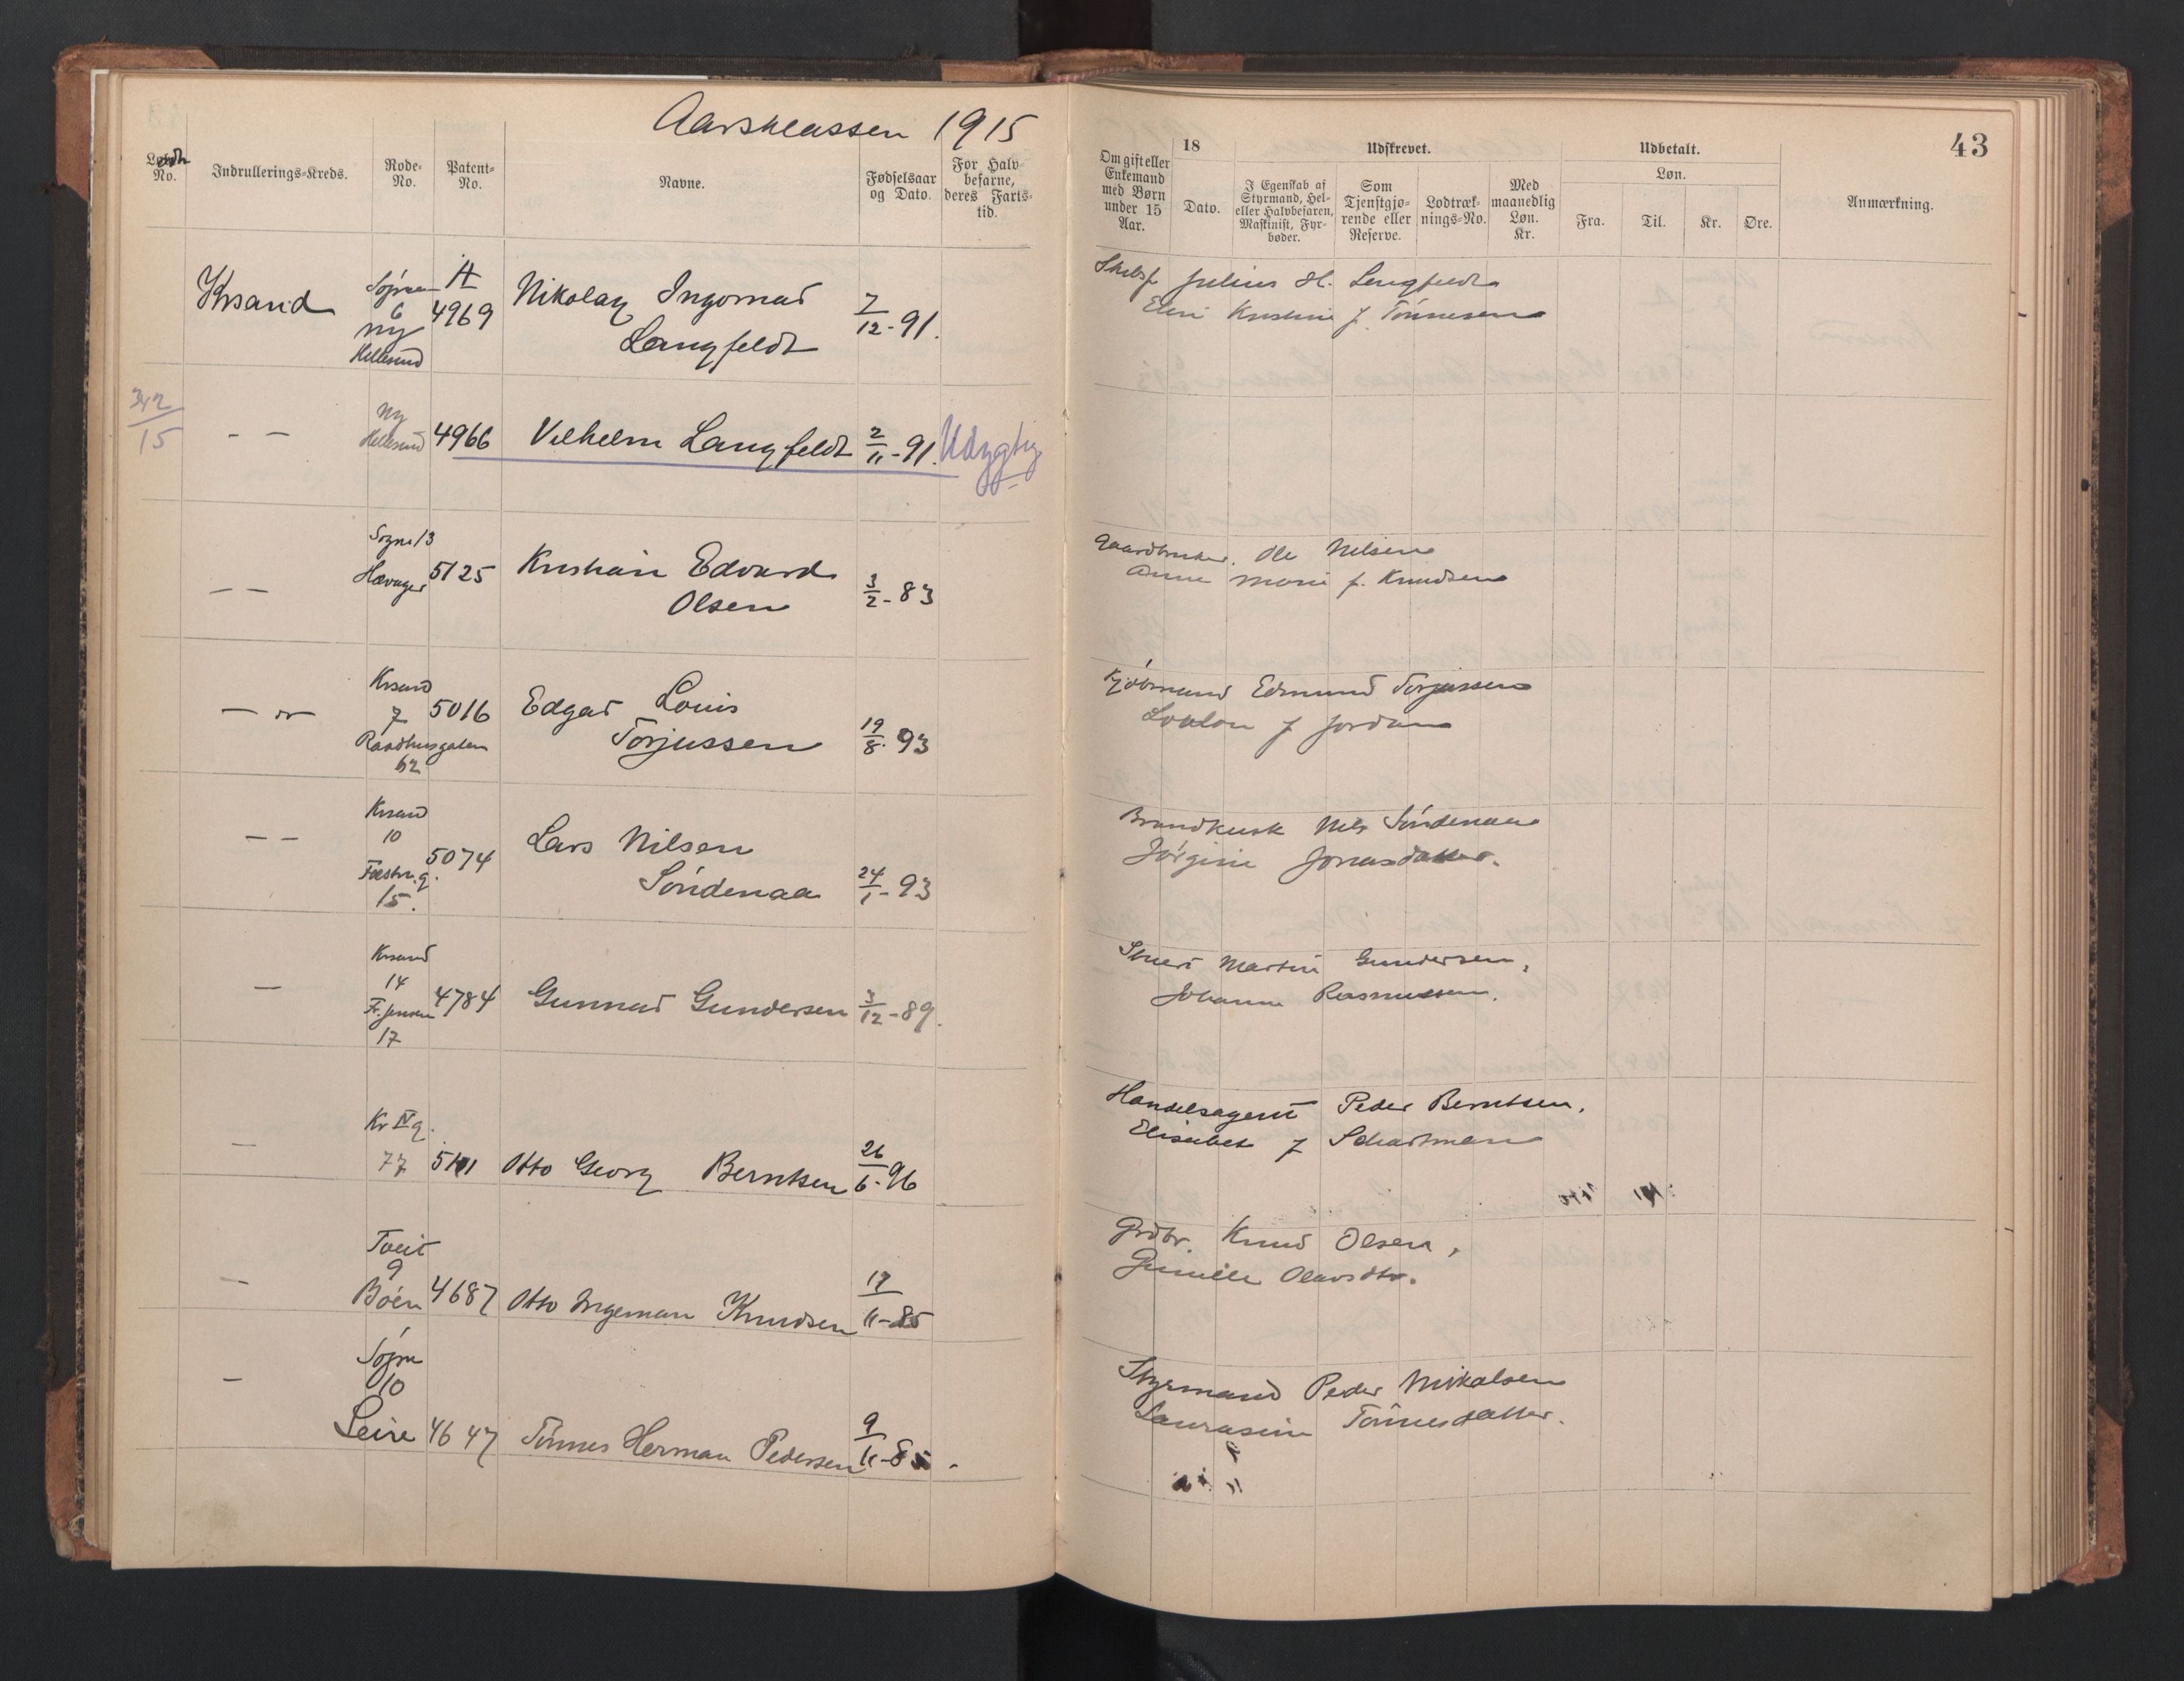 Aarsklassen 1915
No.
Indrullerings-Kreds.
Rode-
No.
Patent-
No.
Navne.
Fødselsaar
og Dato.
For Halv-
befarne,
deres Farts-
tid.
Krsand
Søgne
6
ny
Hellesund
A
4969
Nikolay Ingomar
Langfeldt
7/12-91.
342/15
- -
Ny
Hellesund
4966
Vilhelm Langfeldt
2/11-91.
Udygtig
- -
Sogne 13
5125
Kristian Edvard
Olsen
3/2-83
Krsand
7
Raadhusgaten
62
5016
Edgar Louis
Torjussen
19/8-93
- -
Krsand
10
Festn.g.
15.
5074
Lars Nilsen
Söndenaa
24/1-93
-
Krsand
14
Fr. Jensen
17
4784
Gunnar Gundersen
3/12-89.
-
Kr IV g.
77
Otto Georg Berntsen
26/6-96
-
Tveit
9
Boen
4687
Otto Ingeman Knudsen
17/11-85
-
Søgne
10
Leire
4647
Tönnes Herman Pedersen
9/11-85.
43
Om gift eller
Enkemand
med Børn
under 15
Aar.
18
Dato.
Udskrevet.
I Egenskab af
Styrmand, Hel-
eller Halvbefaren,
Maskinist, Fyr-
bøder.
Som
Tjenstgjø-
rende eller
Reserve.
Lodtræk-
nings-No.
Med
maanedlig
Løn.
Kr.
Udbetalt.
Løn.
Fra.
Til.
Kr.
Øre.
Anmærkning.
Skibsf. Julius H. Langfeldt
Kristine f. Tönnesen
Gaardbruker. Ole Nilsen
Anne Marie f. Knudsen
Kjöbmand Edmund Torjussen
f Jordan
Brandkusk Nils Söndenaa
Jörgine Jonasdatter.
Martin Gundersen,
Johanne Rasmussen.
Handelsagent Peder Berntsen,
Elisabet f Schartman
Grdbr. Knud Olsen,
Gunille Olavsdtr.
Styrmand Peder Mikalsen
Laurasine Tönnesdatter.